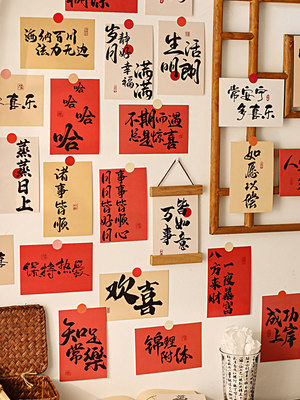 海纳百川
法力无边
岁月静好
幸福满满
生活
明朗
常安宁
多喜乐
多喜乐
哈
哈
哈
哈
不期而遇
总是惊喜
蒸蒸日上
诸事皆顺
事事皆顺心
日日皆好日
万事
皆如意
如愿以偿
保持热爱
欢喜
八方来财
一夜暴富
知足
常樂
锦鲤
附体
成功
上岸